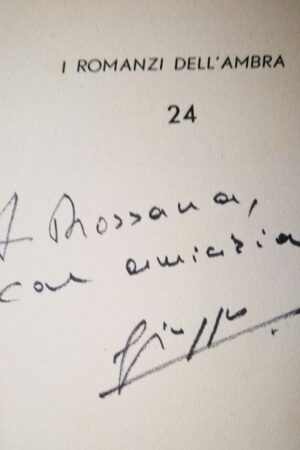 I ROMANZI DELL'AMBRA
24
A Rossana,
con amicizia